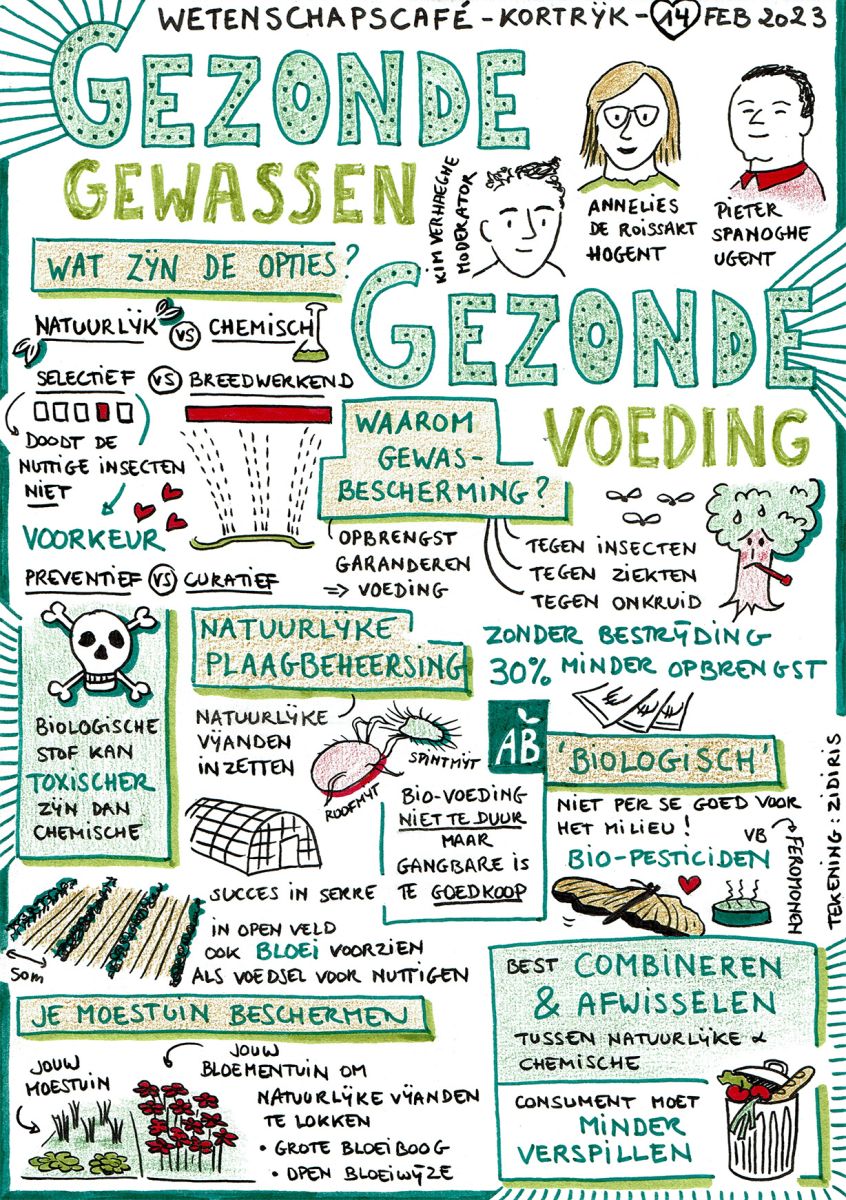 WETENSCHAPSCAFÉ - KORTRIJK - 14 FEB 2023
GEZONDE
GEWASSEN
KIM VERHAEGHE
MODERATOR
ANNELIES
DE ROISSART
HOGENT
PIETER
SPANOGHE
UGENT
GEZONDE
VOEDING
WAT ZIJN DE OPTIES?
NATUURLIJK VS CHEMISCH
SELECTIEF VS BREEDWERKEND
DOODT DE
NUTTIGE INSECTEN
NIET
VOORKEUR
PREVENTIEF VS CURATIEF
WAAROM
GEWAS-
BESCHERMING?
OPBRENGST
GARANDEREN
=> VOEDING
TEGEN INSECTEN
TEGEN ZIEKTEN
TEGEN ONKRUID
ZONDER BESTRIJDING
30% MINDER OPBRENGST
BIOLOGISCHE
STOF KAN
TOXISCHER
ZIJN DAN
CHEMISCHE
NATUURLIJKE
PLAAGBEHEERSING
NATUURLIJKE
VIJANDEN
INZETTEN
ROOFMIJT
SPINTMIJT
SUCCES IN SERRE
IN OPEN VELD
OOK BLOEI VOORZIEN
ALS VOEDSEL VOOR NUTTIGEN
50m
AB
'BIOLOGISCH'
€ € €
BIO-VOEDING
NIET TE DUUR
MAAR
GANGBARE IS
TE GOEDKOOP
NIET PER SE GOED VOOR
HET MILIEU!
BIO-PESTICIDEN
VB
FEROMONEN
TEKENING: ZIDIRIS
BEST COMBINEREN
& AFWISSELEN
TUSSEN NATUURLIJKE &
CHEMISCHE
CONSUMENT MOET
MINDER
VERSPILLEN
JE MOESTUIN BESCHERMEN
JOUW
MOESTUIN
JOUW
BLOEMENTUIN OM
NATUURLIJKE VIJANDEN
TE LOKKEN
• GROTE BLOEIBOOG
• OPEN BLOEIWIJZE